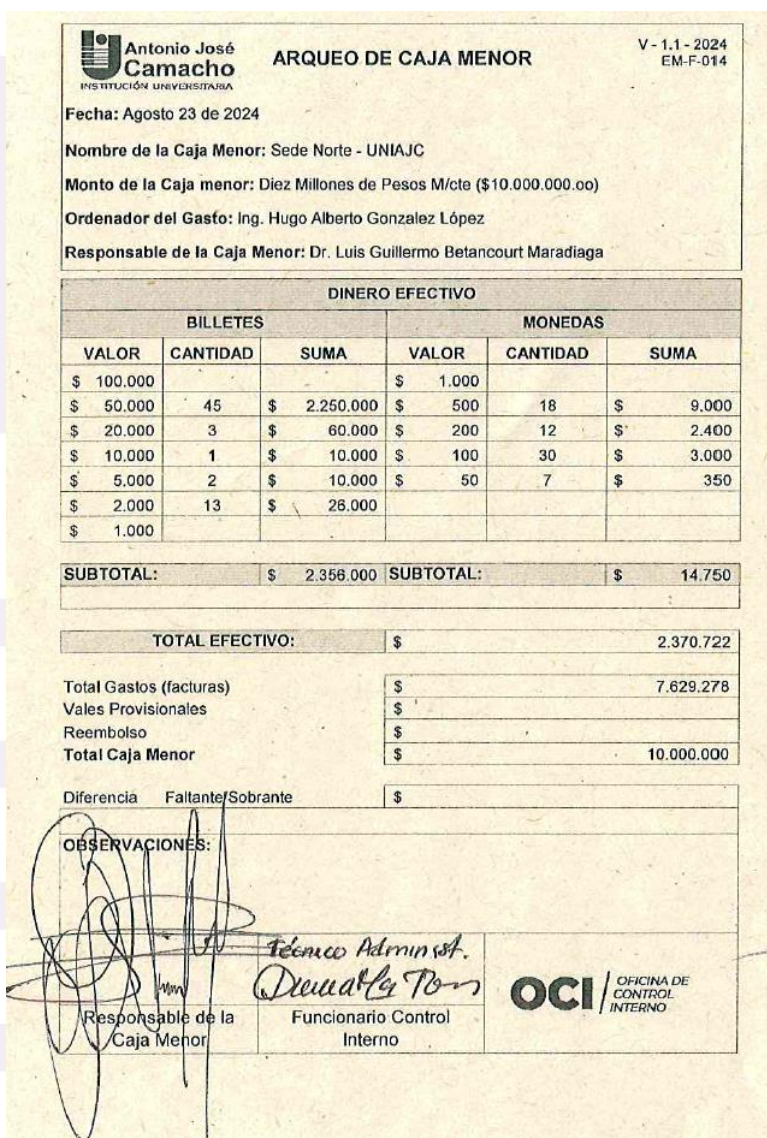 Antonio José
Camacho
INSTITUCIÓN UNIVERSITARIA
ARQUEO DE CAJA MENOR
V - 1.1 - 2024
EM-F-014
Fecha: Agosto 23 de 2024
Nombre de la Caja Menor: Sede Norte - UNIAJC
Monto de la Caja menor: Diez Millones de Pesos M/cte ($10.000.000.oo)
Ordenador del Gasto: Ing. Hugo Alberto Gonzalez López
Responsable de la Caja Menor: Dr. Luis Guillermo Betancourt Maradiaga
DINERO EFECTIVO
BILLETES MONEDAS
VALOR CANTIDAD SUMA VALOR CANTIDAD SUMA
$ 100.000 $ 1.000
$ 50.000 45 $ 2.250.000 $ 500 18 $ 9.000
$ 20.000 3 $ 60.000 $ 200 12 $ 2.400
$ 10.000 1 $ 10.000 $ 100 30 $ 3.000
$ 5.000 2 $ 10.000 $ 50 7 $ 350
$ 2.000 13 $ 26.000
$ 1.000
SUBTOTAL: $ 2.356.000 SUBTOTAL: $ 14.750
TOTAL EFECTIVO: $ 2.370.722
Total Gastos (facturas) $ 7.629.278
Vales Provisionales $
Reembolso $
Total Caja Menor $ 10.000.000
Diferencia Faltante/Sobrante $
OBSERVACIONES:
Técnico Administ.
Responsable de la
Caja Menor
Funcionario Control
Interno
OCI
OFICINA DE
CONTROL
INTERNO